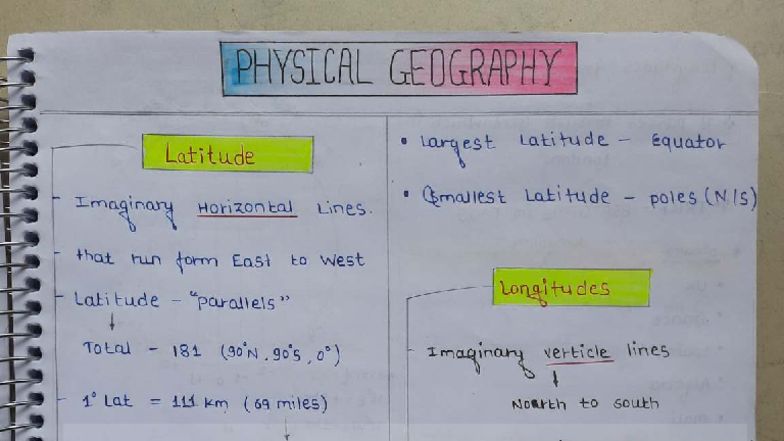 PHYSICAL GEOGRAPHY
Latitude
Imaginary Horizontal Lines.
that run form East to West
Latitude - "parallels"
Total - 181 (90°N, 90°S, 0°)
1° Lat = 111 km (69 miles)
• Largest Latitude - Equator
• Smallest Latitude - poles (N/S)
Longitudes
Imaginary verticle lines
Noarth to south